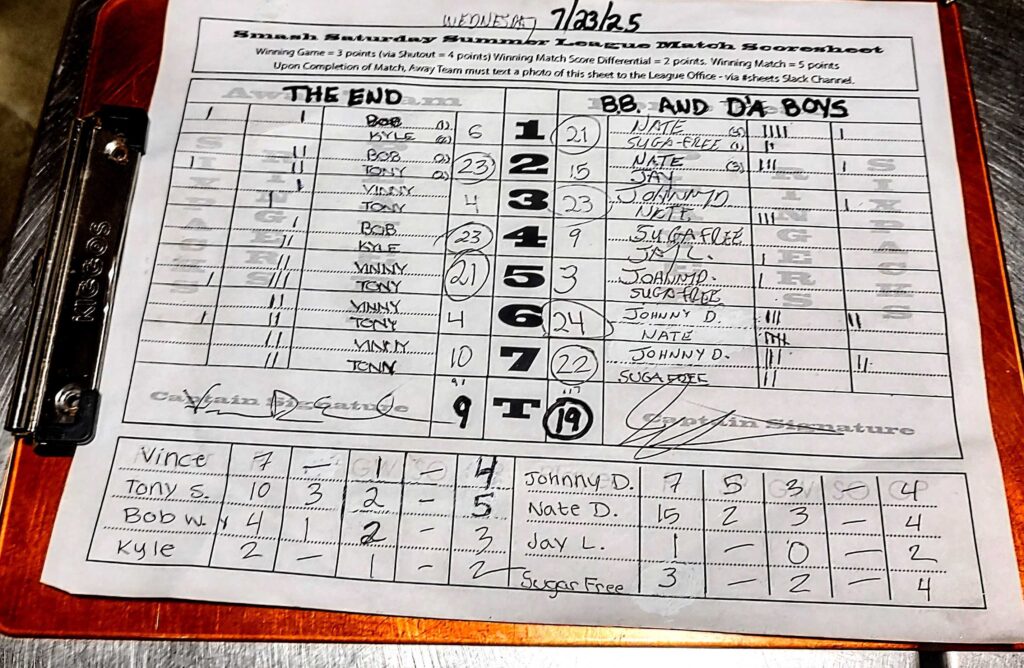 WEDNESDAY 7/23/25
Smash Saturday Summer League Match Scoresheet
Winning Game = 3 points (via Shutout = 4 points) Winning Match Score Differential = 2 points. Winning Match = 5 points
Upon Completion of Match, Away Team must text a photo of this sheet to the League Office - via #sheets Slack Channel.
THE END B.B. AND D'A BOYS
BOB 6 1 21 NATE
KYLE SUGA-FREE
BOB 23 2 15 NATE
TONY JAY
VINNY 4 3 23 JOHNNY D
TONY NATE
BOB 23 4 9 SUGAFREE
KYLE JAY L.
VINNY 21 5 3 JOHNNY D.
TONY SUGA FREE
VINNY 4 6 24 JOHNNY D.
TONY NATE
VINNY 10 7 22 JOHNNY D.
TONY SUGA FREE
91 117
Captain Signature 9 T 19 Captain Signature
Vince 7 — 1 — 4 Johnny D. 7 5 3 — 4
Tony S. 10 3 2 - 5 Nate D. 15 2 3 — 4
Bob W. 4 1 2 - 3 Jay L. 1 — 0 — 2
Kyle 2 — 1 - 2 Sugar Free 3 — 2 — 4